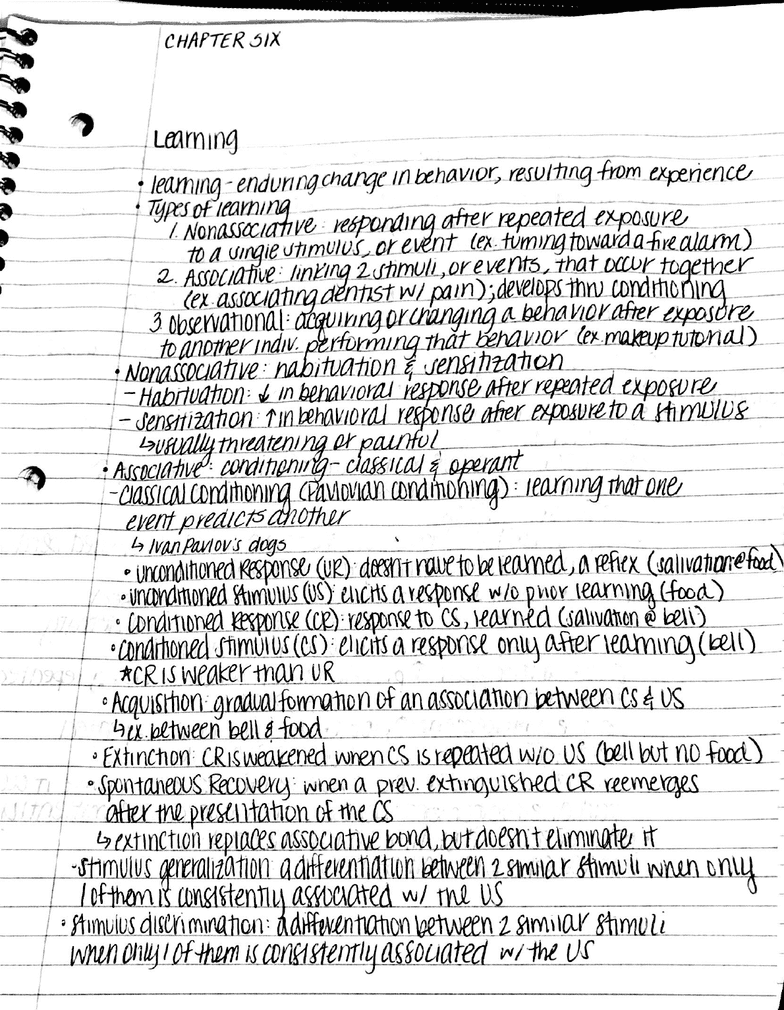 CHAPTER SIX
Learning
• learning - enduring change in behavior, resulting from experience
• Types of learning
1. Nonassociative: responding after repeated exposure
to a single stimulus, or event (ex. turning toward a fire alarm)
2. Associative: linking 2 stimuli, or events, that occur together
(ex. associating dentist w/ pain); develops thru conditioning
3. observational: acquiring or changing a behavior after exposure
to another indiv. performing that behavior (ex. makeup tutorial)
• Nonassociative: habituation & sensitization
- Habituation: ↓ in behavioral response after repeated exposure
- Sensitization: ↑ in behavioral response after exposure to a stimulus
↳ usually threatening or painful
• Associative: conditioning - classical & operant
- Classical Conditioning (Pavlovian conditioning): learning that one
event predicts another
↳ Ivan Pavlov's dogs
• Unconditioned Response (UR): doesn't have to be learned, a reflex (salivation @ food)
• Unconditioned Stimulus (US): elicits a response w/o prior learning (food)
• Conditioned Response (CR): response to CS, learned (salivation @ bell)
• Conditioned Stimulus (CS): elicits a response only after learning (bell)
*CR is weaker than UR
• Acquisition: gradual formation of an association between CS & US
↳ ex. between bell & food
• Extinction: CR is weakened when CS is repeated w/o US (bell but no food)
• Spontaneous Recovery: when a prev. extinguished CR reemerges
after the presentation of the CS
↳ extinction replaces associative bond, but doesn't eliminate it
- Stimulus generalization: a differentiation between 2 similar stimuli when only
1 of them is consistently associated w/ the US
• Stimulus discrimination: a differentiation between 2 similar stimuli
when only 1 of them is consistently associated w/ the US